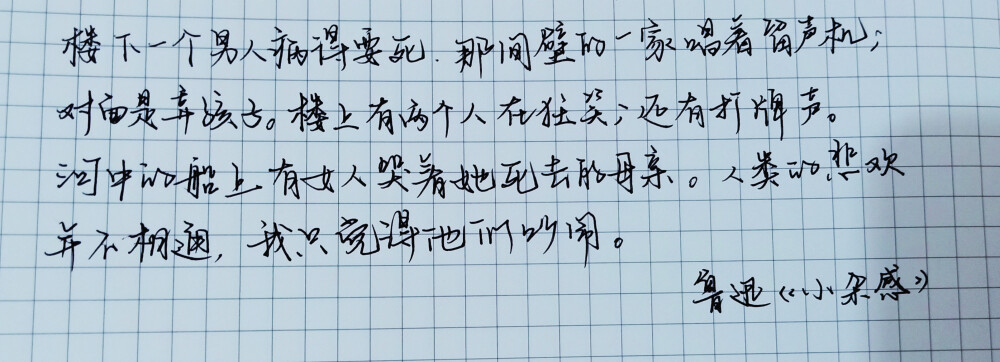 楼下一个男人病得要死,那间壁的一家唱着留声机;
对面是弄孩子。楼上有两个人在狂笑;还有打牌声。
河中的船上有女人哭着她死去的母亲。人类的悲欢
并不相通,我只觉得他们吵闹。
鲁迅《小杂感》